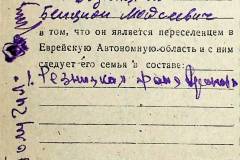 Бенцион Мотелевич
в том, что он является переселенцем в
Еврейскую Автономную область и с ним
следует его семья в составе:
1 Резницкая Фаня